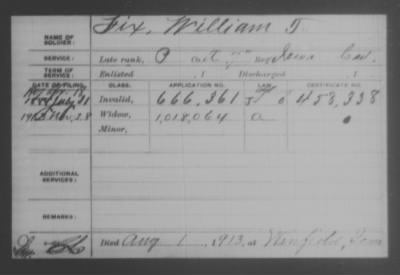 Fix, William T.
NAME OF SOLDIER:
SERVICE: Late rank, P Co. Reg't Iowa Cav.
TERM OF SERVICE: Enlisted , 1 Discharged , 1
DATE OF FILING. CLASS. APPLICATION NO. LAW. CERTIFICATE NO.
Invalid, 666,361 458,338
Nov. 28 Widow, 1,018,064 a
Minor,
ADDITIONAL SERVICES:
REMARKS:
Died Aug 1, 1913, at Winfield, Iowa